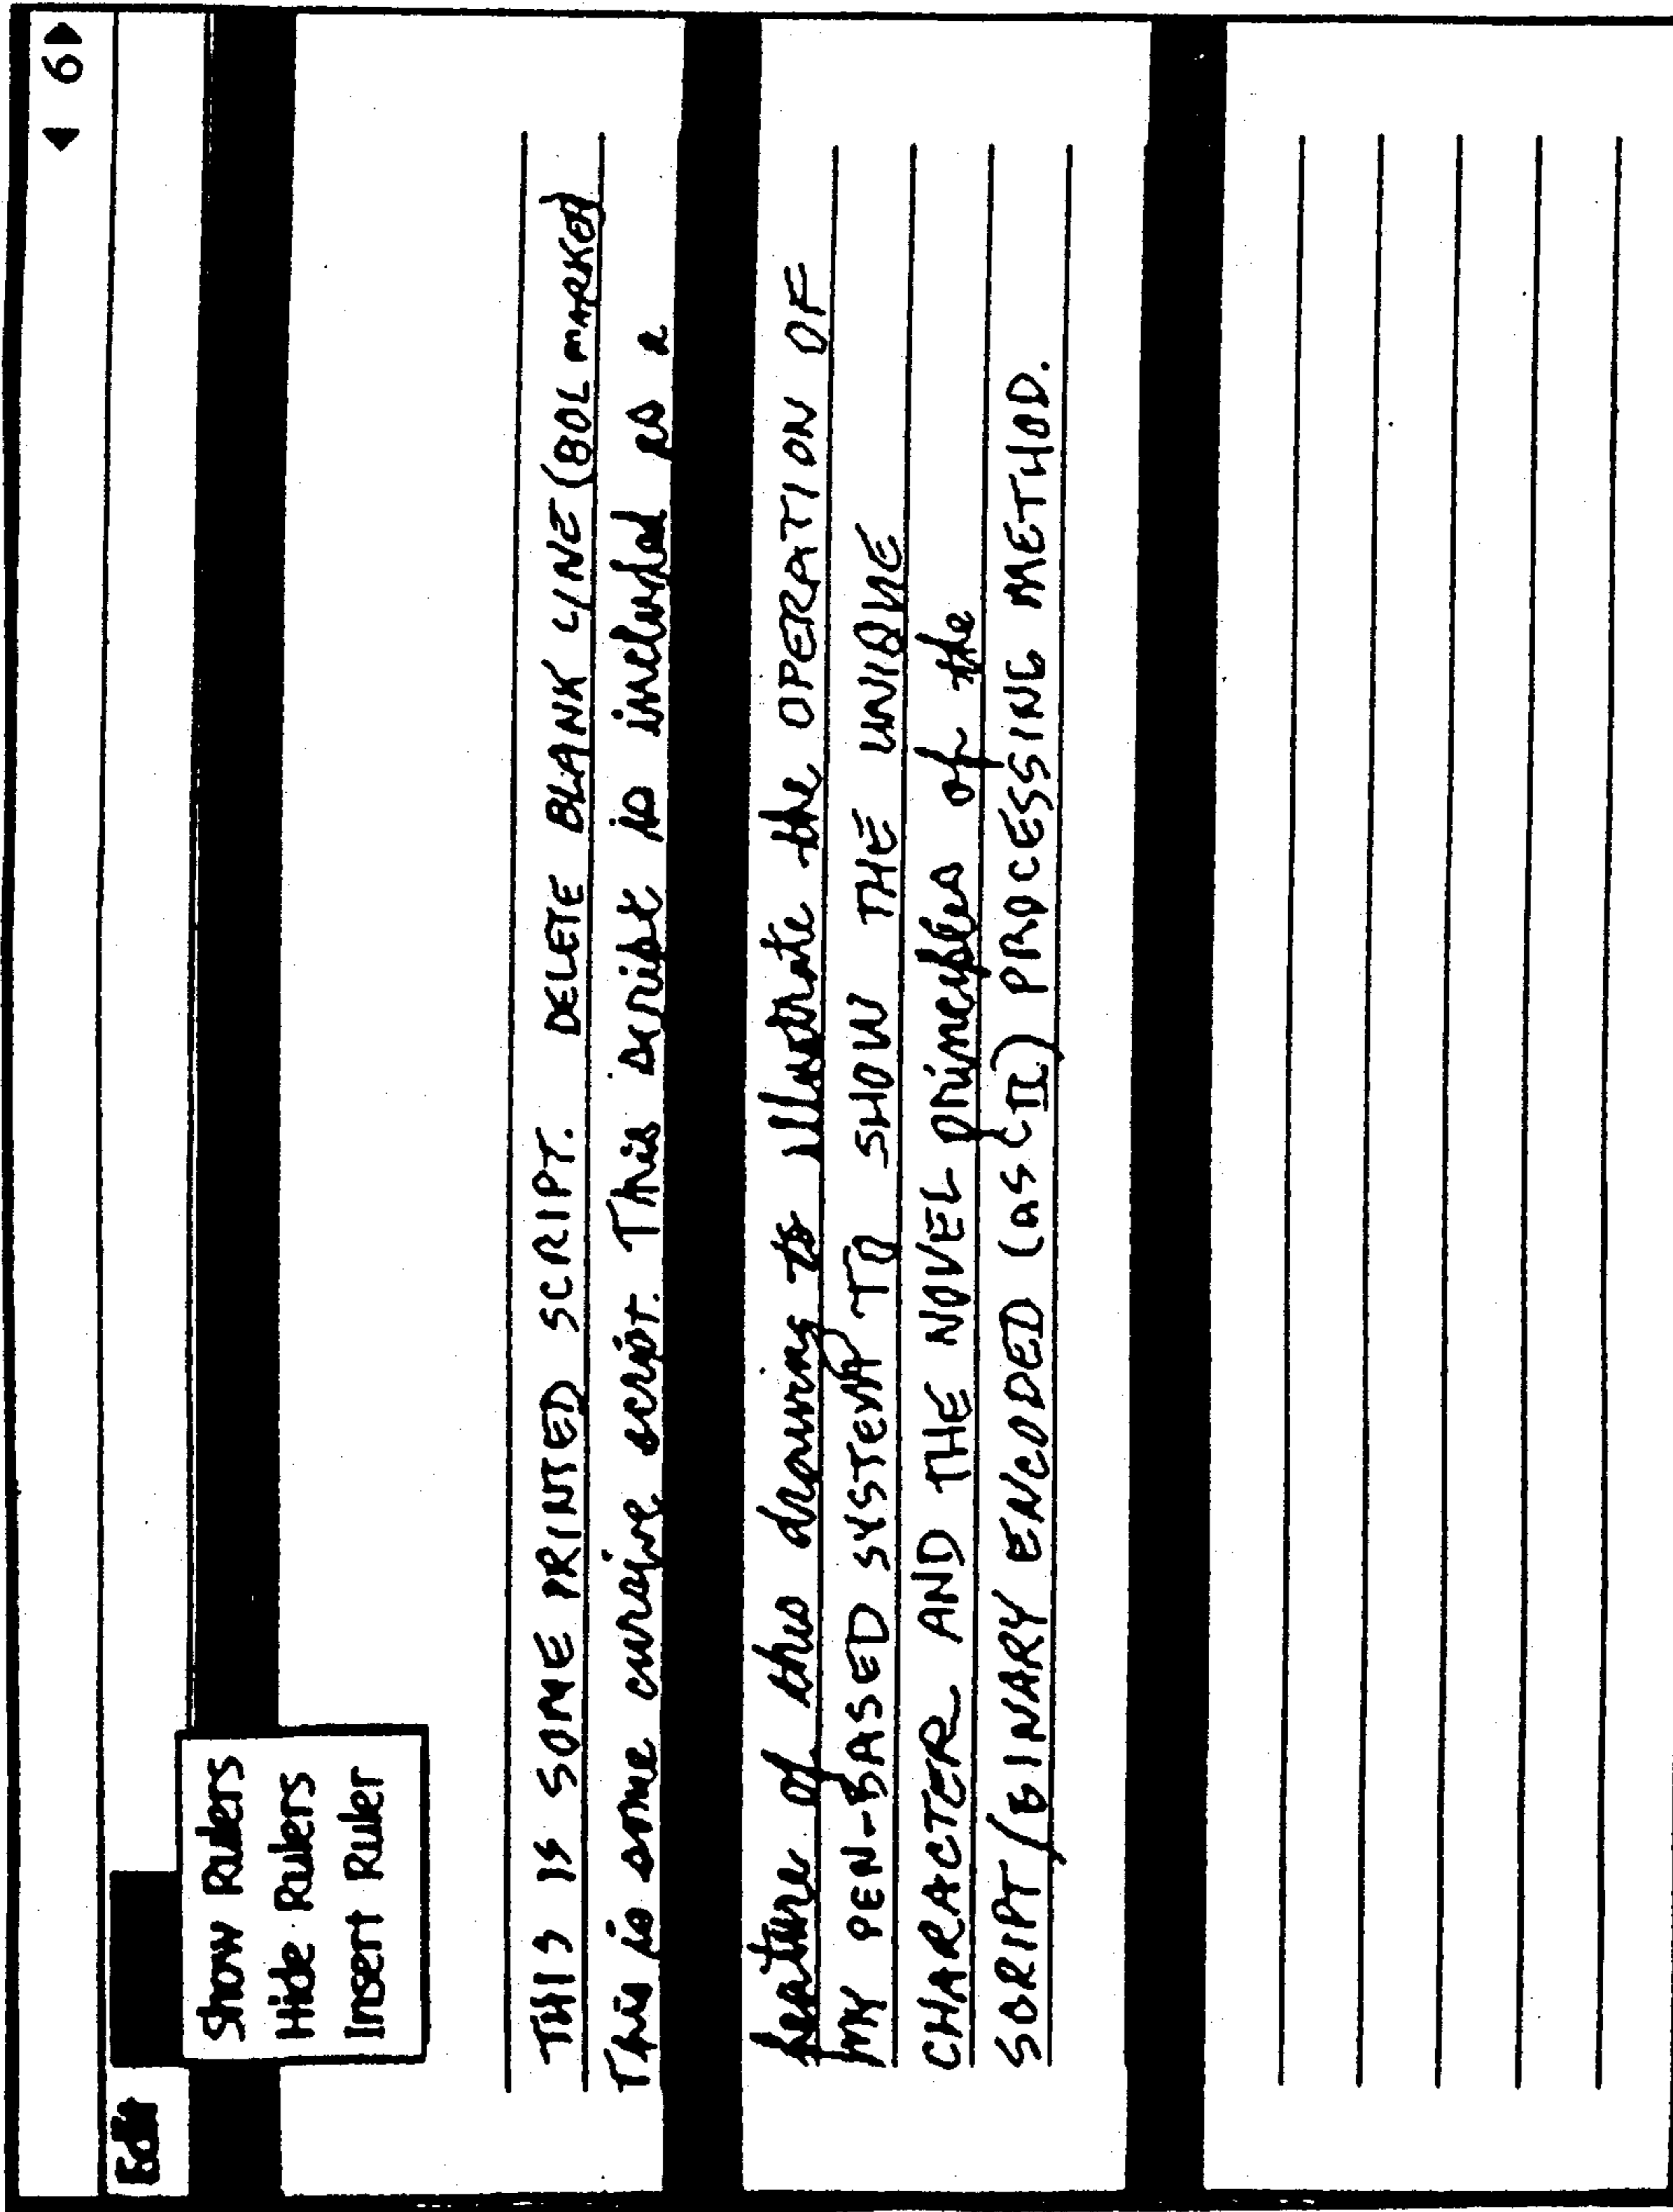 ◀ 6 ▶
Edit
Show Rulers
Hide Rulers
Insert Ruler
THIS IS SOME PRINTED SCRIPT. DELETE BLANK LINE (BOL MARKER)
This is some cursive script. This script is included as a
feature of this drawing to illustrate the OPERATION OF
MY PEN-BASED SYSTEM TO SHOW THE UNIQUE
CHARACTER AND THE NOVEL principles of the
SCRIPT/BINARY ENCODED (ASCII) PROCESSING METHOD.